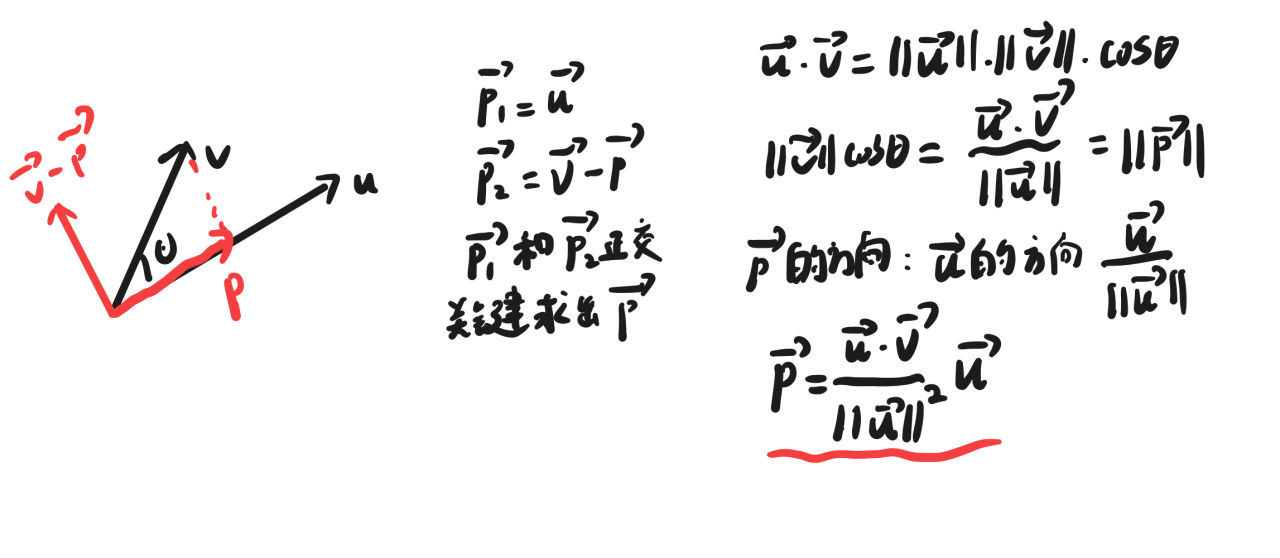 v⃗ - p⃗
v
u
θ
p
p⃗₁ = u⃗
p⃗₂ = v⃗ - p⃗
p⃗₁ 和 p⃗₂ 正交
关键求出 p⃗
u⃗ · v⃗ = ||u⃗|| · ||v⃗|| · cosθ
||v⃗|| cosθ = (u⃗ · v⃗) / ||u⃗|| = ||p⃗||
p⃗ 的方向: u⃗ 的方向 u⃗ / ||u⃗||
p⃗ = (u⃗ · v⃗) / ||u⃗||² u⃗